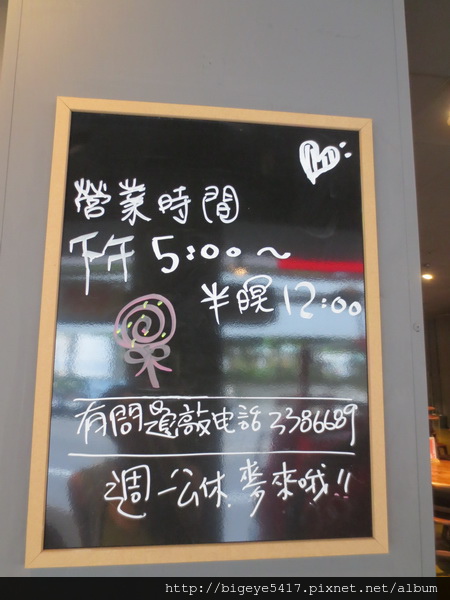 營業時間
下午 5:00~
半暝 12:00
有問題敲电話 3386689
週一公休. 麥來哦!!
http://bigeye5417.pixnet.net/album